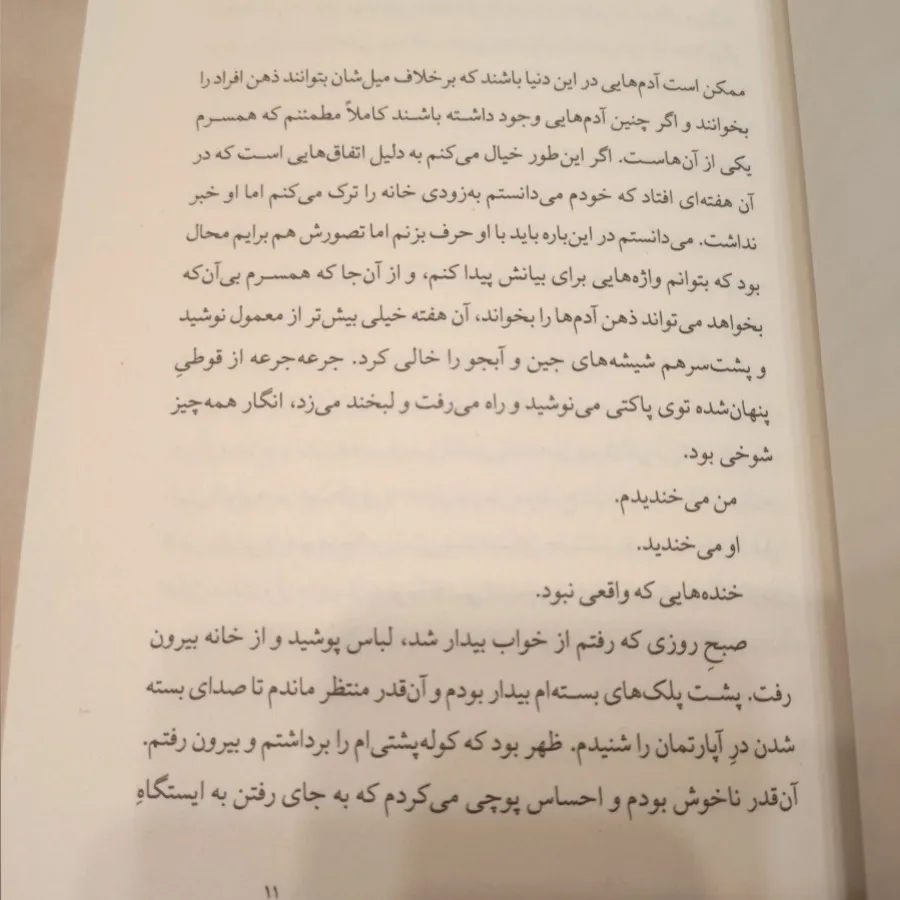 ممکن است آدم‌هایی در این دنیا باشند که برخلاف میل‌شان بتوانند ذهن افراد را
بخوانند و اگر چنین آدم‌هایی وجود داشته باشند کاملاً مطمئنم که همسرم
یکی از آن‌هاست. اگر این‌طور خیال می‌کنم به دلیل اتفاق‌هایی است که در
آن هفته‌ای افتاد که خودم می‌دانستم به‌زودی خانه را ترک می‌کنم اما او خبر
نداشت. می‌دانستم در این‌باره باید با او حرف بزنم اما تصورش هم برایم محال
بود که بتوانم واژه‌هایی برای بیانش پیدا کنم، و از آن‌جا که همسرم بی‌آن‌که
بخواهد می‌تواند ذهن آدم‌ها را بخواند، آن هفته خیلی بیش‌تر از معمول نوشید
و پشت‌سرهم شیشه‌های جین و آبجو را خالی کرد. جرعه‌جرعه از قوطیِ
پنهان‌شده توی پاکتی می‌نوشید و راه می‌رفت و لبخند می‌زد، انگار همه‌چیز
شوخی بود.
من می‌خندیدم.
او می‌خندید.
خنده‌هایی که واقعی نبود.
صبحِ روزی که رفتم از خواب بیدار شد، لباس پوشید و از خانه بیرون
رفت. پشت پلک‌های بسته‌ام بیدار بودم و آن‌قدر منتظر ماندم تا صدای بسته
شدن درِ آپارتمان را شنیدم. ظهر بود که کوله‌پشتی‌ام را برداشتم و بیرون رفتم.
آن‌قدر ناخوش بودم و احساس پوچی می‌کردم که به جای رفتن به ایستگاهِ
۱۱